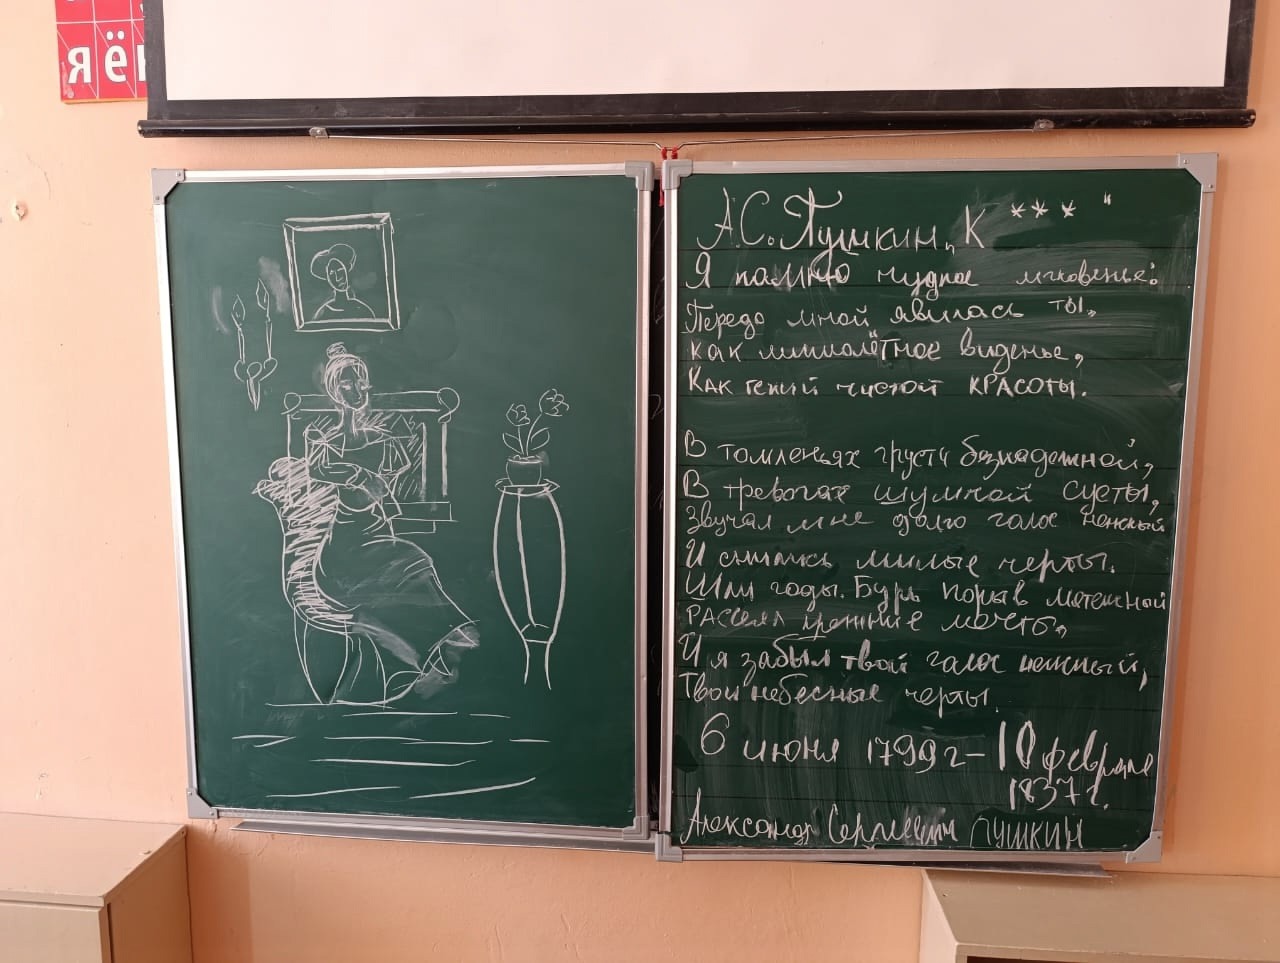 ЯЁ
А.С. Пушкин „К ***"
Я помню чудное мгновенье:
Передо мной явилась ты,
Как мимолётное виденье,
Как гений чистой КРАСОТЫ.
В томленьях грусти безнадежной,
В тревогах шумной суеты,
Звучал мне долго голос нежный
И снились милые черты.
Шли годы. Бурь порыв мятежный
РАССЕЯЛ прежние мечты,
И я забыл твой голос нежный,
Твои небесные черты.
6 июня 1799 г – 10 февраля
1837 г.
Александр Сергеевич ПУШКИН